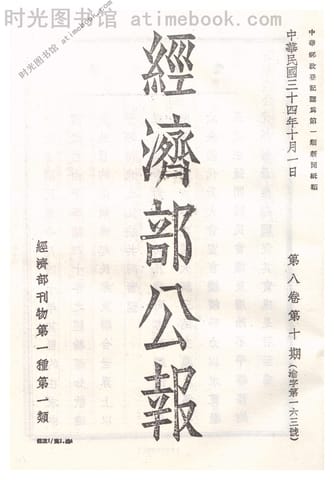 时光图书馆 — atimebook.com
中華郵政登記認爲第一類新聞紙類
中華民國三十四年十月一日
第八卷第十期(渝字第一六三號)
經濟部公報
經濟部刊物第一種第一類
时光图书馆 atimebook.com